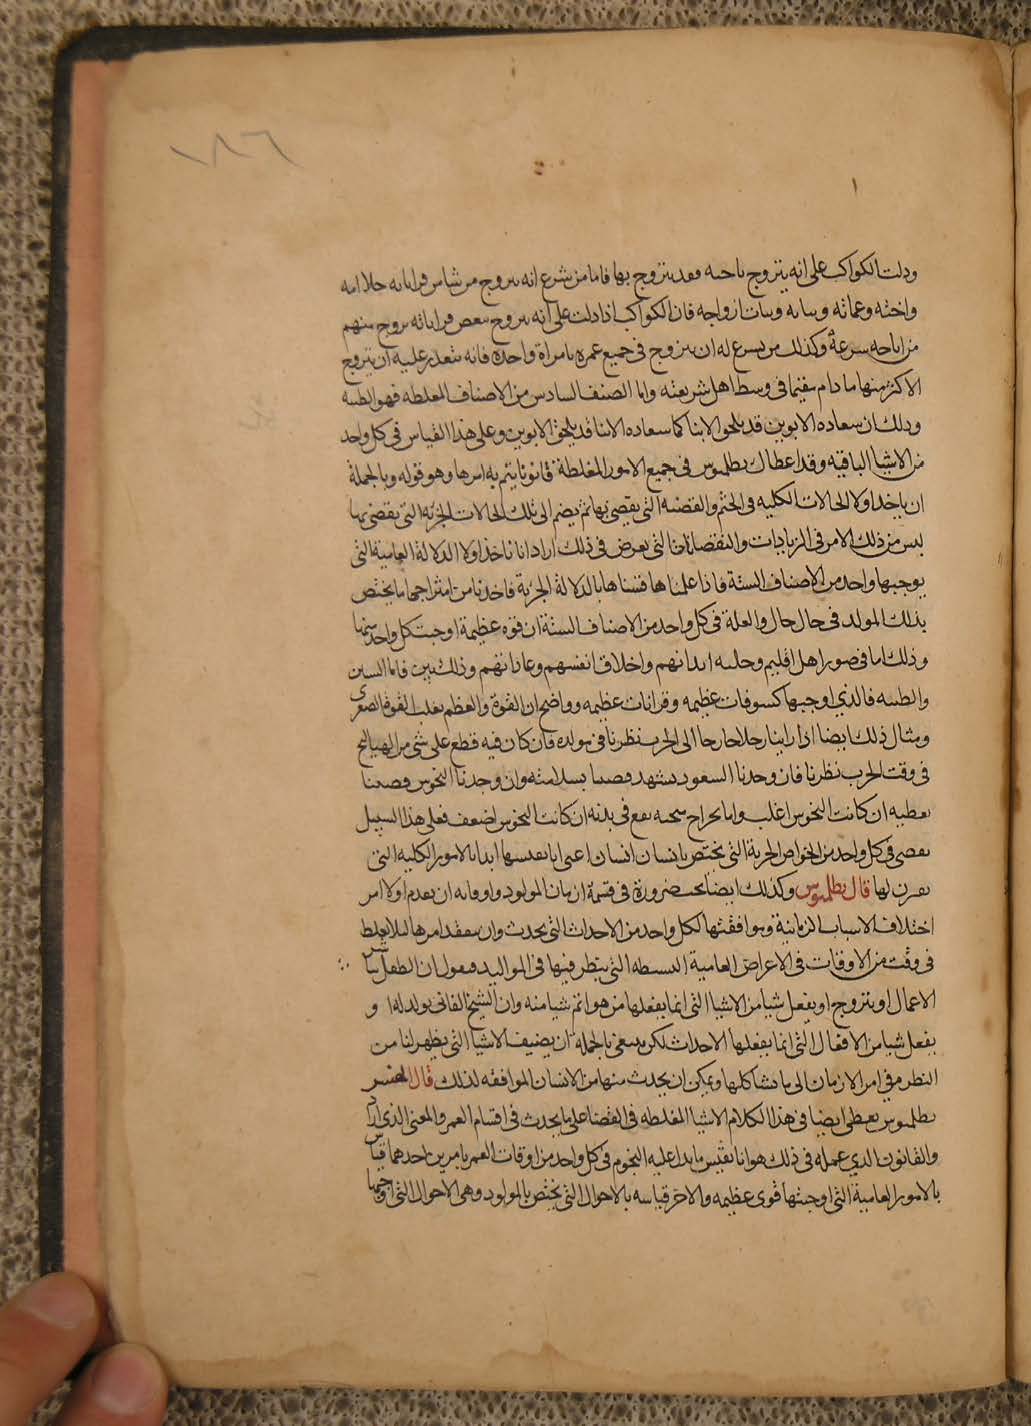 ١٨٦
ودلت الكواكب على انه يتزوج باحىه فقد يتزوج بها فاما من شرع انه يتزوج من شا من قراباته خلا امه
واخته وعماته وبناته وبنات ازواجه فان الكواكب اذا دلت على انه يتزوج ببعض قراباته تزوج منهم
من اباحه سرعة وكذلك من يسرع له ان يتزوج فى جميع عمره بامراة واحدة فانه يتعذر عليه ان يتزوج
الاكثر منها ما دام مقيما فى وسط اهل شريعته واما الصنف السادس من الاصناف المغلطه فهو ابطىه
وذلك ان سعاده الابوين قد يلحق الابنا كما سعاده الابنا قد يلحق الابوين وعلى هذا القياس فى كل واحد
من الاشيا الباقيه وقد اعطاك بطلميوس فى جميع الامور المغلطة قانونا يتم به امرها وهو قوله وبالجملة
ان ياخذ اولا الحالات الكليه فى الحتم والقضيه التى يقضى بها ثم يضم الى تلك الحالات الجزئه التى يقضى بها
ليس من ذلك الامر فى الزيادات والنقصانات التى يعرض فى ذلك اراد انا ناخذ اولا الدلالة العامية التى
يوجبها واحد من الاصناف الستة فاذا علمناها قسناها بالدلالة الجزية فاخذنا من امتزاجهما ما يختص
بذلك المولد فى حال حال والعلة فى كل واحد من الاصناف الستة ان قوه عظيمة اوجبت كل واحد منها
وذلك اما فى صور اهل اقليم وحليه ابدانهم واخلاق انفسهم وعاداتهم وذلك بين فاما السنن
والطىىه فالذي اوجبها كسوفات عظيمه وقرانات عظيمه وواضح ان القوة والعظم يغلب القوة الصغرى
ومثال ذلك ايضا اذا راينا رجلا خارجا الى الحرب نظرنا فى مولده فان كان فيه قطع على شى من الهيالج
فى وقت الحرب نظرنا فان وجدنا السعود يشهد قضينا بسلامته وان وجدنا النحوس قضينا
بعطبه ان كانت النحوس اغلب واما بجراح سحىه يقع فى بدنه ان كانت النحوس اضعف فعلى هذا السبيل
يقضى فى كل واحد من الخواص الجزية التى يختص بانسان انسان اعنى انا نقيسها ابدا بالامور الكليه التى
يقرن لها قال بطلميوس وكذلك ايضا يجب ضرورة فى قسمة ازمان المولود واوقاته ان يقدم اولا امر
اختلاف الاسباب الزمانية وموافقتها لكل واحد من الاحداث التى يحدث وان يتفقد امرها لئلا يغلط
فى وقت من الاوقات فى الاعراض العامية البسيطه التى ينظر فيها فى المواليد فيقول ان الطفل يباشر
الاعمال او يتزوج او يفعل شيا من الاشيا التى انما يفعلها من هو اتم شيا منه وان الشيخ الفانى يولد له او
يفعل شيا من الافعال التى انما يفعلها الاحداث لكن ينبغى بالجملة ان يضيف الاشيا التى يظهر لنا من
النظر فى امر الازمان الى ما يشاكلها ويمكن ان يحدث منها من الانسان الموافقه لذلك قال المفسر
بطلميوس يعطى ايضا فى هذا الكلام الاشيا المغلطه فى القضا على ما يحدث فى اقسام العمر والمعنى الذى اراد
والقانون الذي عمله فى ذلك هو انا نقيس ما يدل عليه النجوم فى كل واحد من اوقات العمر بامرين احدهما قياس
بالامور العامية التى اوجبتها قوى عظيمه والاخر قياسه بالاحوال التى يختص بالمولود وهى الاحوال التى اوجبها